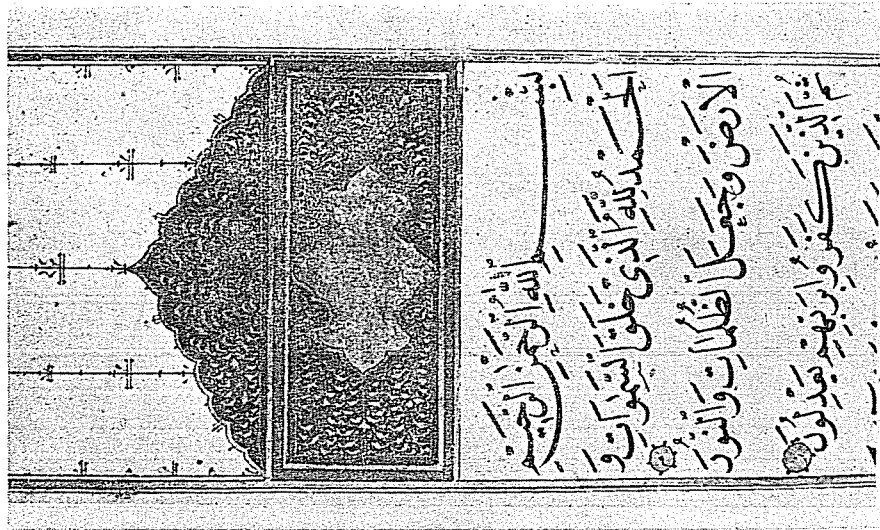 بِسْمِ اللهِ الرَّحْمٰنِ الرَّحِيمِ
اَلْحَمْدُ لِلّٰهِ الَّذِي خَلَقَ السَّمٰوَاتِ وَ
الْاَرْضَ وَجَعَلَ الظُّلُمَاتِ وَالنُّورَ
ثُمَّ الَّذِينَ كَفَرُوا بِرَبِّهِمْ يَعْدِلُونَ